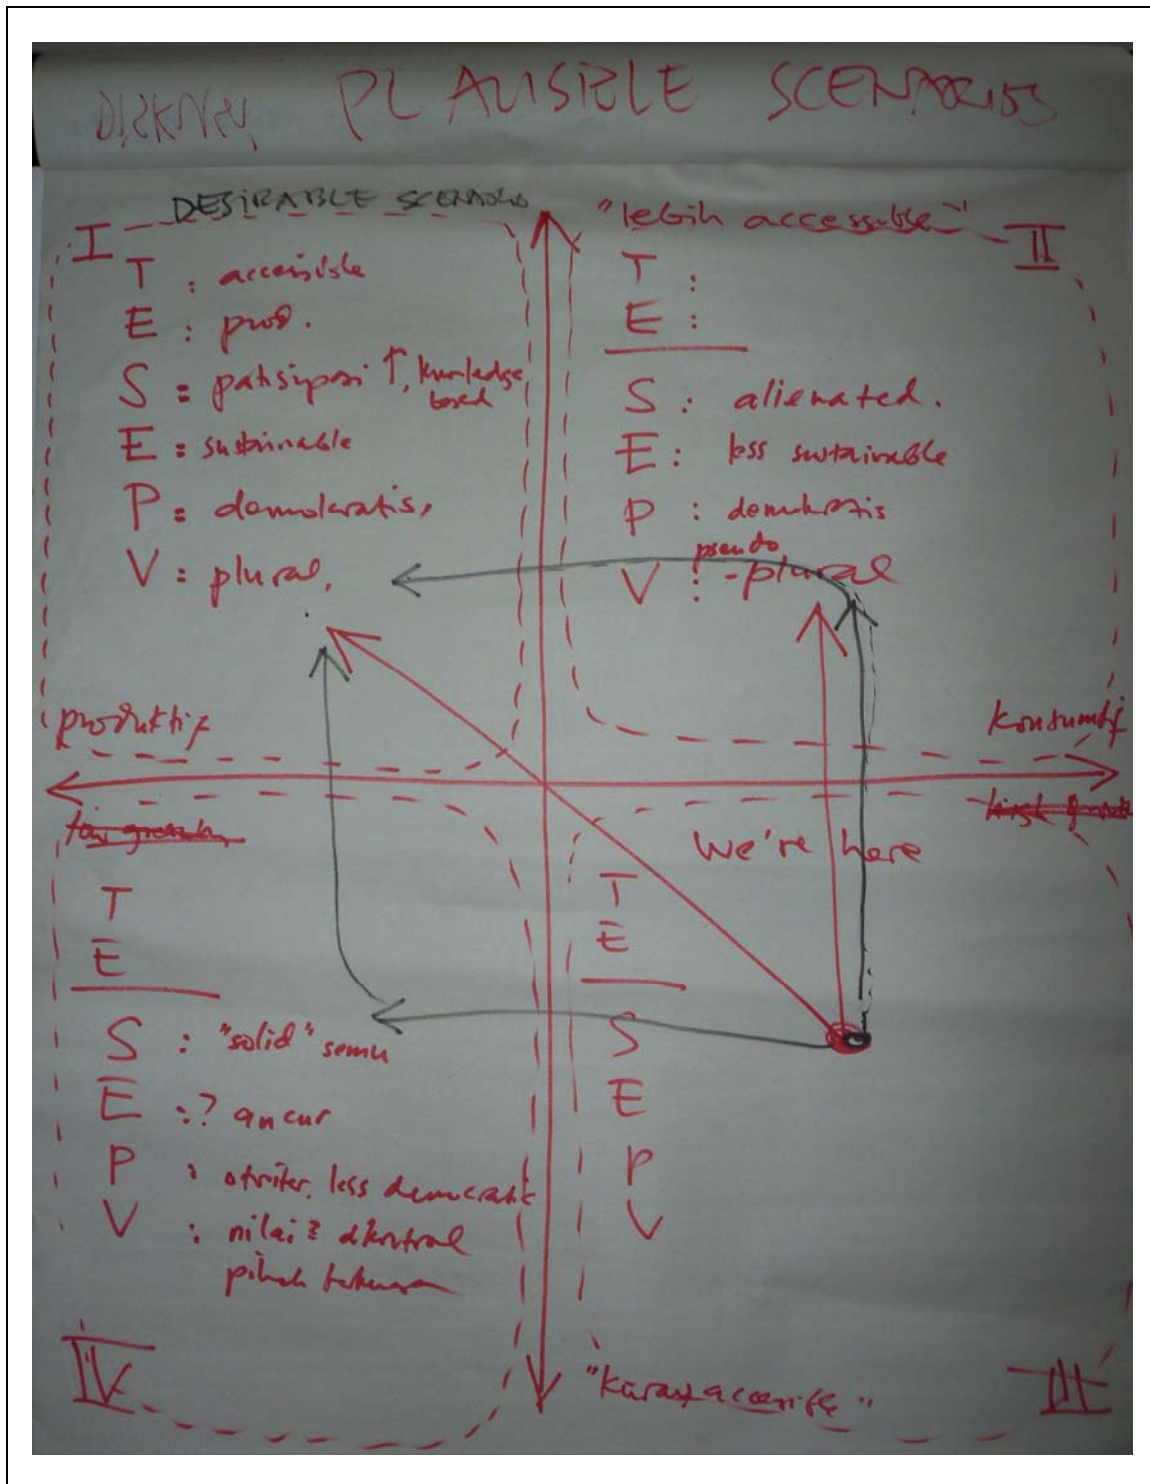 PLAUSIBLE SCENARIOS
DESIRABLE SCENARIO
I
T : accessible
E : prod.
S : patisipasi ↑, knowledge based
E : sustainable
P : demokratis,
V : plural,
"lebih accessible"
II
T :
E :
S : alienated.
E : less sustainable
P : demokratis
pseudo
V : -plural
produktif
konsumtif
low growth
high
We're here
T
E
S : "solid" semu
E : ? ancur
P : otoriter, less democratic
V : nilai2 dikontrol
pihak
IV
T
E
S
E
P
V
"kurang accessible"
III